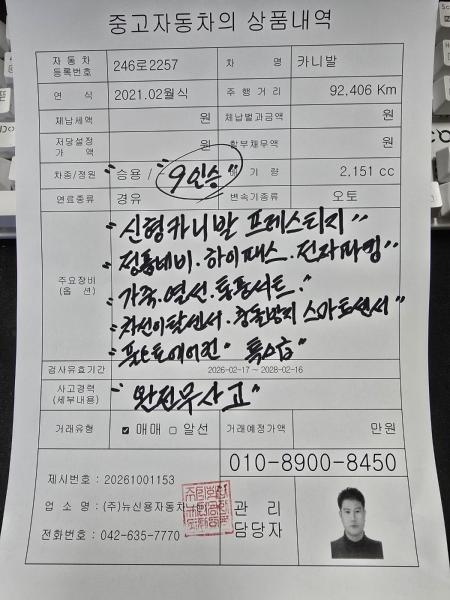 중고자동차의 상품내역
자 동 차 등록번호 246로2257 차 명 카니발
연 식 2021.02월식 주 행 거 리 92,406 Km
체납세액 원 체납벌과금액 원
저당설정 가 액 원 할부채무액 원
차종/정원 승용 / "9인승" 배 기 량 2,151 cc
연료종류 경유 변속기종류 오토
주요장비 (옵 션)
"신형카니발 프레스티지"
"정품네비·하이패스·전자파킹
"가죽·열선·통풍시트·"
"차선이탈센서·충돌방지 스마트센서"
"풀오토에어컨" 특A급"
검사유효기간 2026-02-17 ~ 2028-02-16
사고경력 (세부내용) "완전무사고"
거래유형 ☑ 매매 □ 알선 거래예정가액 만원
제시번호 : 20261001153
업 소 명 : (주)뉴신용자동차
전화번호 : 042-635-7770
010-8900-8450
관 리
담당자